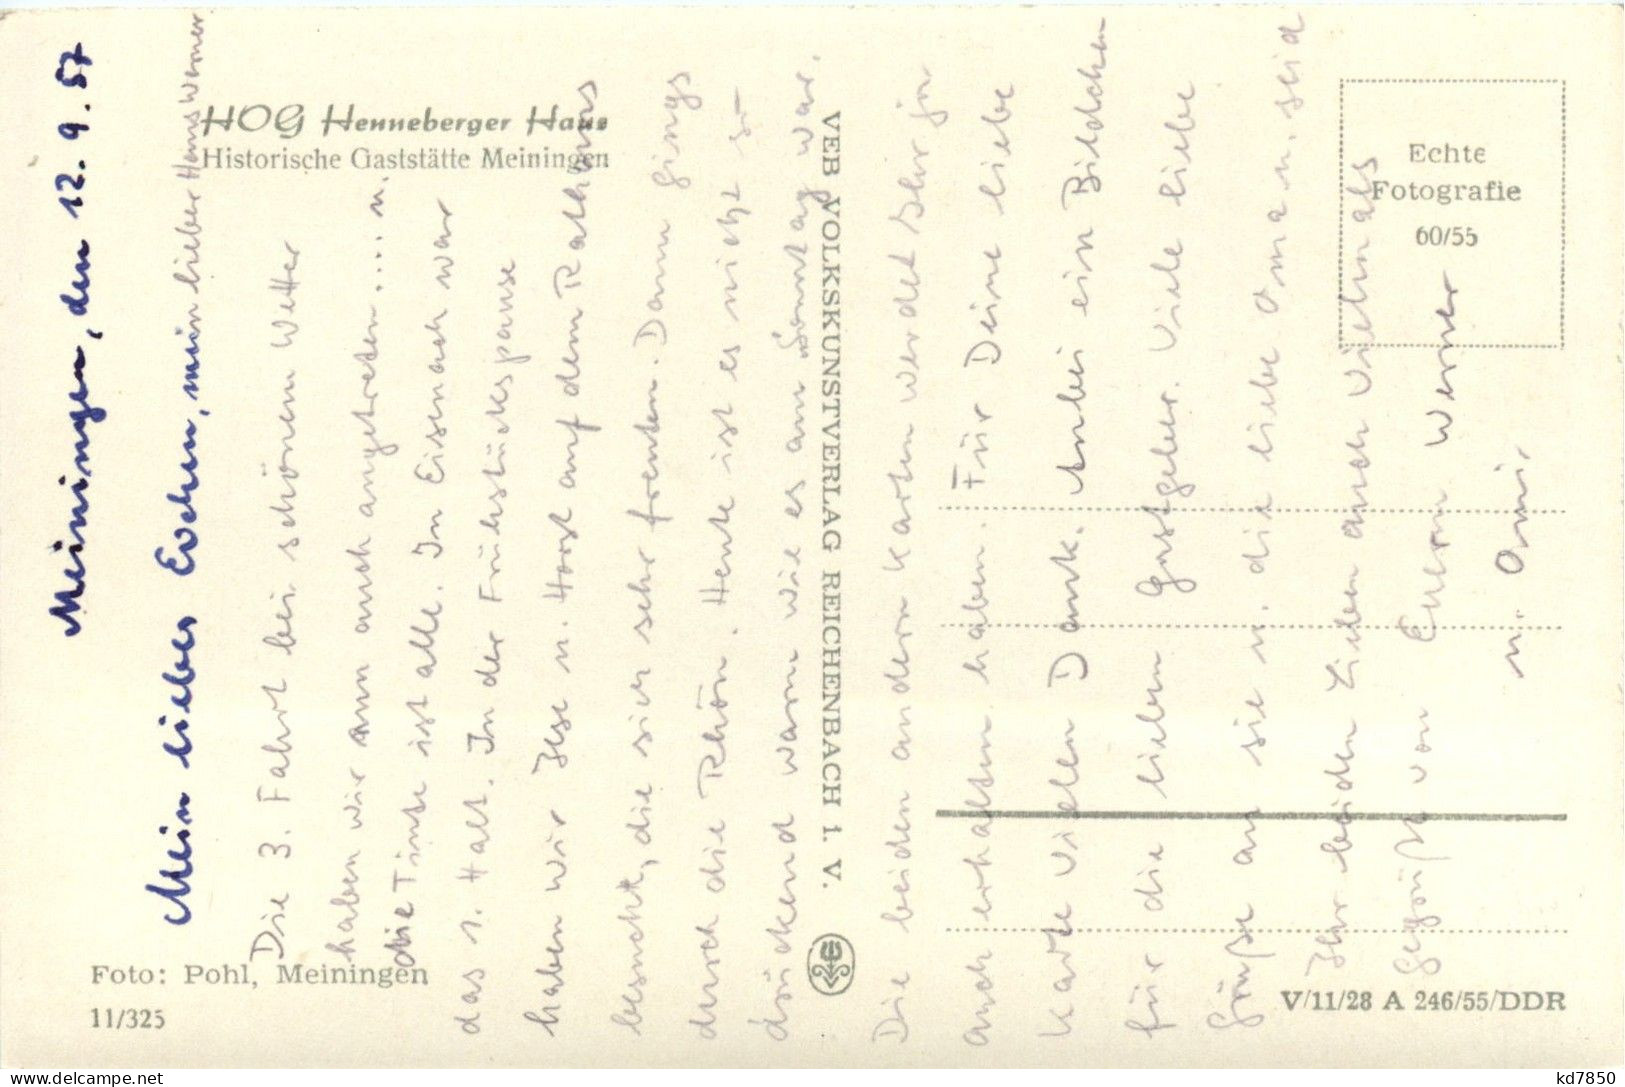 HOG Henneberger Haus
Historische Gaststätte Meiningen
Echte
Fotografie
60/55
VEB VOLKSKUNSTVERLAG REICHENBACH i. V.
Foto: Pohl, Meiningen
11/325
V/11/28 A 246/55/DDR
Meiningen, den 12.9.57
Mein liebes Evchen, mein lieber Hans Werner
Die 3. Fahrt bei schönem Wetter
haben wir nun auch angetreten.... u.
die Tinte ist alle. In Eisenach war
das 1. Halt. In der Frühstückspause
haben wir Ilse u. Horst auf dem Rathaus
besucht, die sich sehr freuten. Dann gings
durch die Rhön. Heute ist es nicht so
drückend warm wie es am Sonntag war.
Die beiden andern Karten werdet Ihr ja
auch erhalten haben. Für Deine liebe
Karte vielen Dank. Anbei ein Bildchen
für die lieben Gastgeber. Viele liebe
Grüße an sie u. die liebe Oma u. seid
Ihr beiden Lieben auch vielmals
gegrüßt von Euerm Werner
u. Omi
kd7850